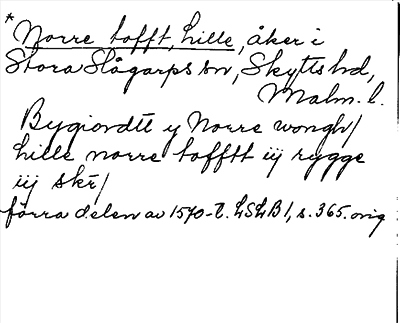 * Norre tofft, lille, åker i
Stora Slågarps sn, Skytts hd,
Malm. l.
Bygiordtt y Norre wongh/
lille norre tofftt iij rygge
iij skr/
förra delen av 1570-t. LSLB 1, s. 365. orig